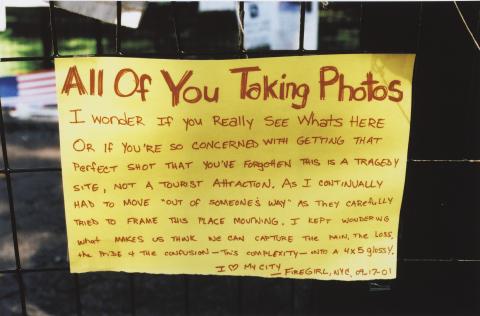 All Of You Taking Photos
I wonder If you Really See Whats Here
Or if you're so concerned with getting that
Perfect shot that you've forgotten this is a tragedy
site, not a tourist attraction. As I continually
had to move "out of someone's way" as they carefully
tried to frame this place mourning, I kept wondering
what makes us think we can capture the pain, the loss,
the pride & the confusion - this complexity - into a 4x5 glossy.
I ♡ my city - Firegirl, NYC, 09-17-01